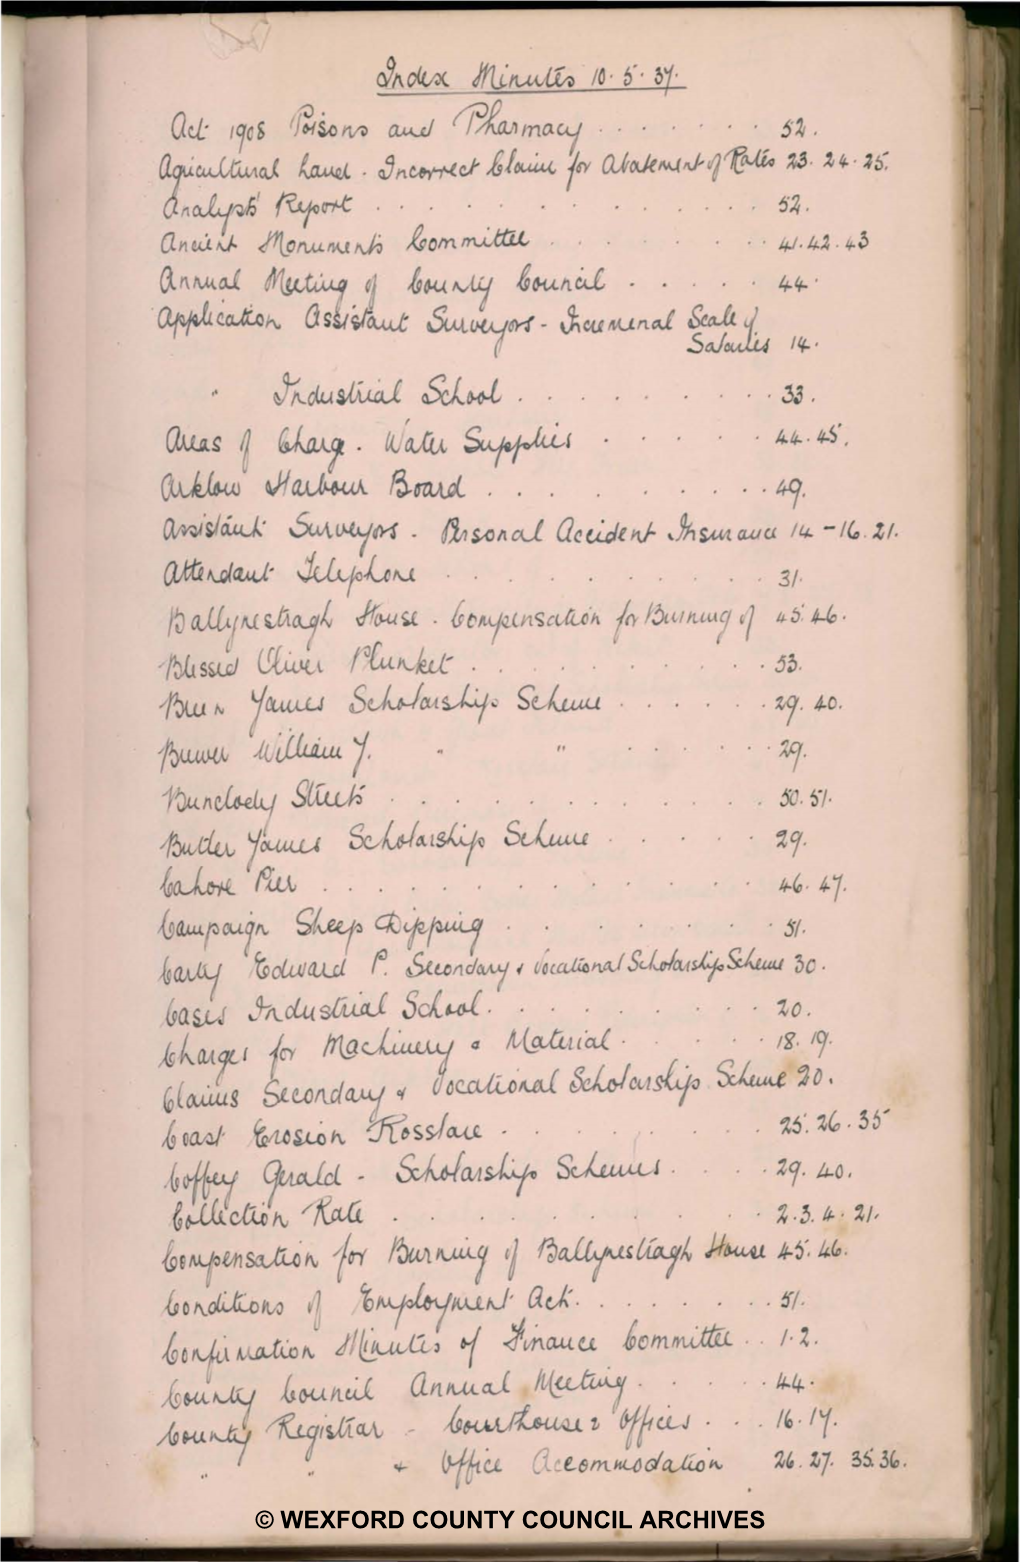 Index Minutes 10. 5. 37.
Act 1908 Poisons and Pharmacy . . . . . . . 52.
Agricultural Land - Incorrect Claim for Abatement of Rates 23. 24. 25.
Analysts' Report . . . . . . . . . . . . . 52.
Ancient Monuments Committee . . . . . . . . 41. 42. 43
Annual Meeting of County Council . . . . . . 44.
Application Assistant Surveyors - Incremenal Scale of
Salaries 14.
" Industrial School . . . . . . . . . . 33.
Areas of Charge - Water Supplies . . . . . . 44. 45.
Arklow Harbour Board . . . . . . . . . . 49.
Assistant Surveyors - Personal Accident Insurance 14 - 16. 21.
Attendant Telephone . . . . . . . . . . . 31.
Ballynestragh House - Compensation for Burning of 45. 46.
Blessed Oliver Plunket . . . . . . . . . . 53.
Breen James Scholarship Scheme . . . . . . 29. 40.
Brewer William J. " " . . . . . . 29.
Bunclody Streets . . . . . . . . . . . . 50. 51.
Butler James Scholarship Scheme . . . . . 29.
Cahore Pier . . . . . . . . . . . . . . 46. 47.
Campaign Sheep Dipping . . . . . . . . . 51.
Carty Edward P. Secondary & Vocational Scholarship Scheme 30.
Cases Industrial School . . . . . . . . . 20.
Charges for Machinery & Material . . . . . 18. 19.
Claims Secondary & Vocational Scholarship Scheme 20.
Coast Erosion Rosslare . . . . . . . . . 25. 26. 35
Coffey Gerald - Scholarship Schemes . . . . 29. 40.
Collection Rate . . . . . . . . . . . . 2. 3. 4. 21.
Compensation for Burning of Ballynestragh House 45. 46.
Conditions of Employment Act . . . . . . . 51.
Confirmation Minutes of Finance Committee . . 1. 2.
County Council Annual Meeting . . . . . . 44.
County Registrar - Courthouse & Offices . . . 16. 17.
" " & Office Accommodation 26. 27. 35. 36.
© WEXFORD COUNTY COUNCIL ARCHIVES